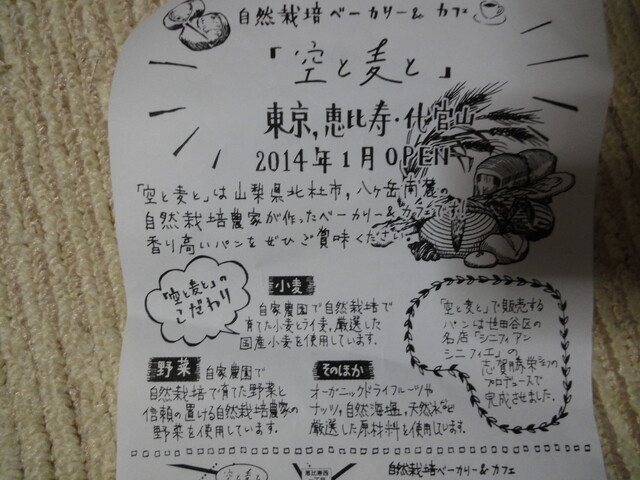 自然栽培ベーカリー& カフェ
「空と麦と」
東京,恵比寿・代官山
2014年1月 OPEN
「空と麦と」は山梨県北杜市,八ヶ岳南麓の
自然栽培農家が作ったベーカリー&カフェです!
香り高いパンをぜひご賞味ください。
「空と麦と」の
こだわり
小麦
自家農園で自然栽培で
育てた小麦とライ麦,厳選した
国産小麦を使用しています。
「空と麦と」で販売する
パンは世田谷区の
名店「シニフィアン
シニフィエ」の
志賀勝栄
プロデュースで
完成させました。
野菜
自家農園で
自然栽培で育てた野菜と
信頼の置ける自然栽培農家の
野菜を使用しています。
そのほか
オーガニックドライフルーツや
ナッツ,自然海塩,天然水など
厳選した原材料を使用しています。
空と麦と
恵比寿西
自然栽培ベーカリー& カフェ